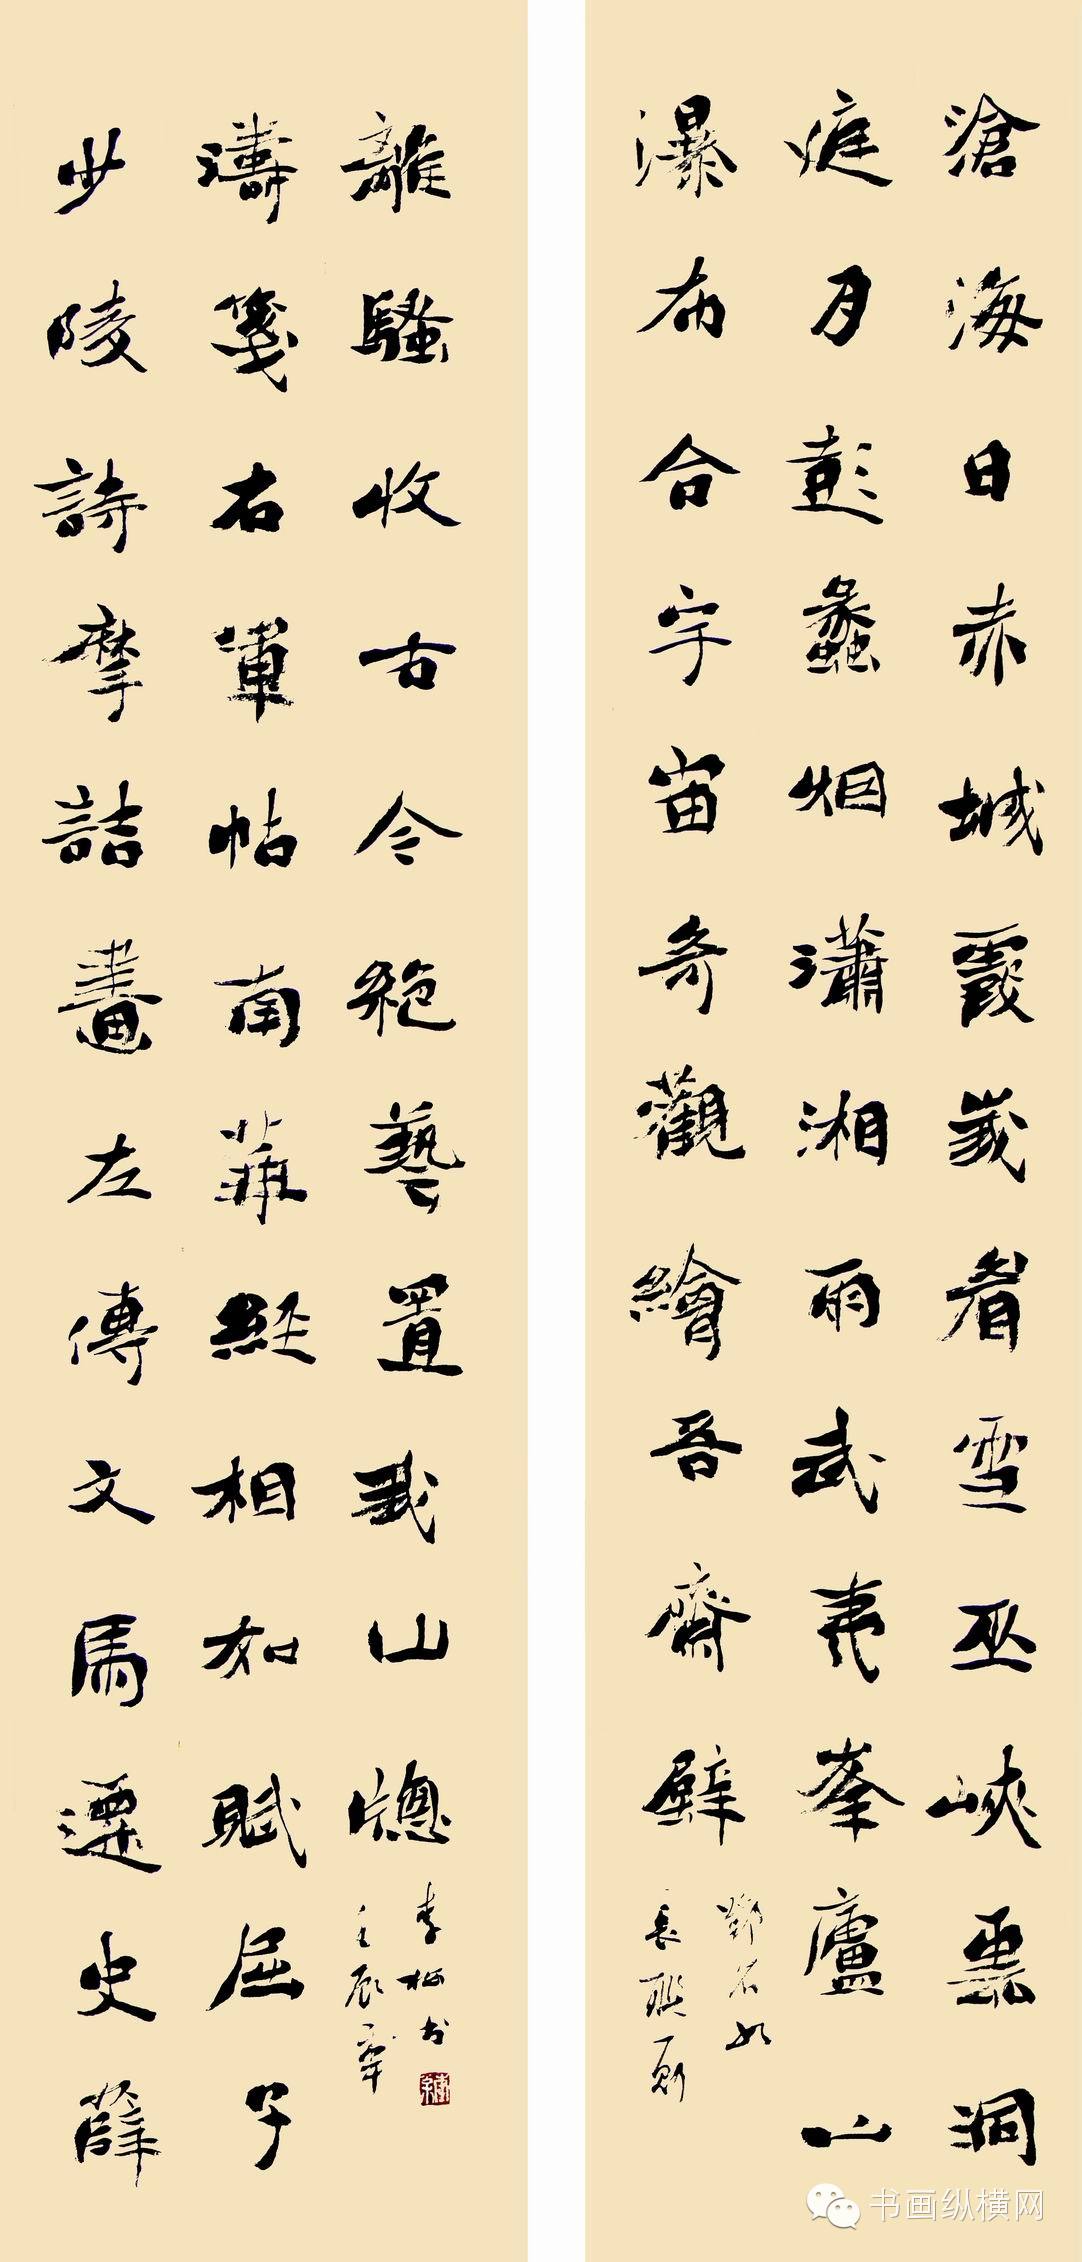 滄海日赤城霞峩眉雪巫峽雲洞
庭月彭蠡烟瀟湘雨武夷峯廬山
瀑布合宇宙奇觀繪吾齋壁
鄧石如
長聯
少陵詩摩詰畫左傳文馬遷史薛
濤箋右軍帖南華經相如賦屈子
離騷收古今絕藝置我山牕
书画纵横网